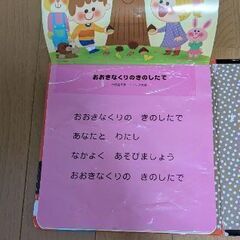 おおきなくりのきのしたで
おおきなくりの きのしたで
あなたと わたし
なかよく あそびましょう
おおきなくりの きのしたで